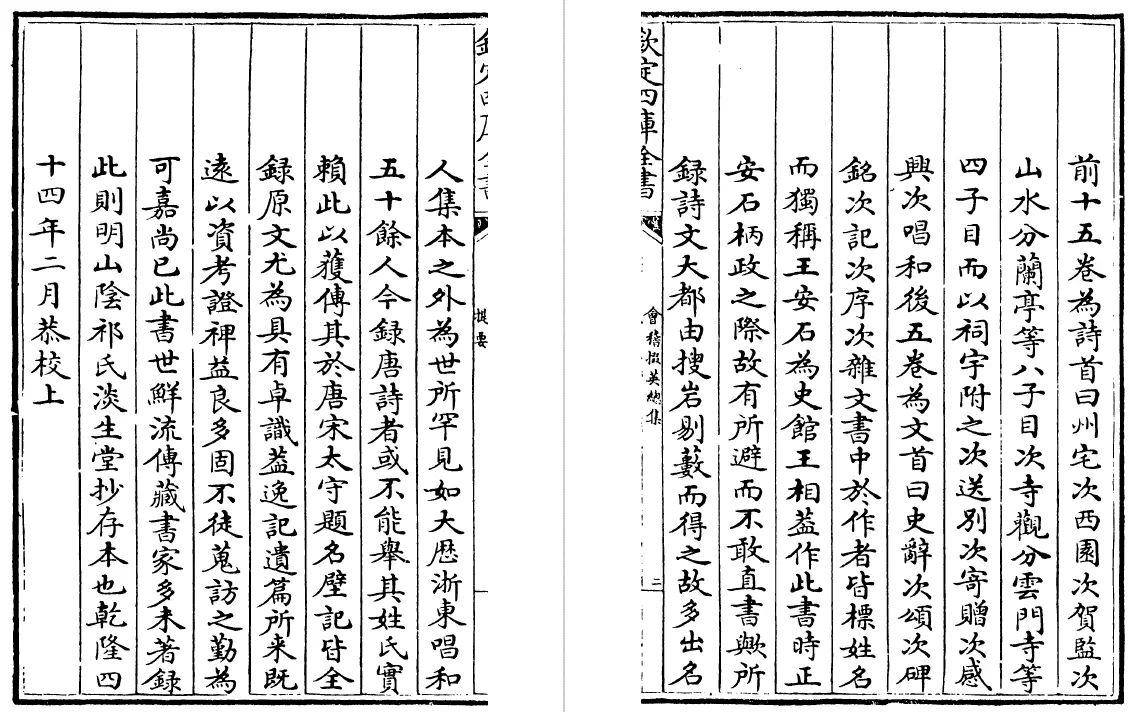 前十五卷為詩首曰州宅次西園次賀監次
山水分蘭亭等八子目次寺觀分雲門寺等
四子目而以祠宇附之次送别次寄贈次感
興次唱和後五卷為文首曰史辭次頌次碑
銘次記次序次雜文書中於作者皆標姓名
而獨稱王安石為史館王相葢作此書時正
安石柄政之際故有所避而不敢直書歟所
録詩文大都由搜岩剔藪而得之故多出名
欽定四庫全書
會稽掇英總集
二
提要
人集本之外為世所罕見如大厯浙東唱和
五十餘人今録唐詩者或不能舉其姓氏實
賴此以獲傳其於唐宋太守題名壁記皆全
録原文尤為具有卓識葢逸記遺篇所来既
遠以資考證裨益良多固不徒蒐訪之勤為
可嘉尚已此書世鮮流傳藏書家多未著録
此則明山陰祁氏淡生堂抄存本也乾隆四
十四年二月恭校上